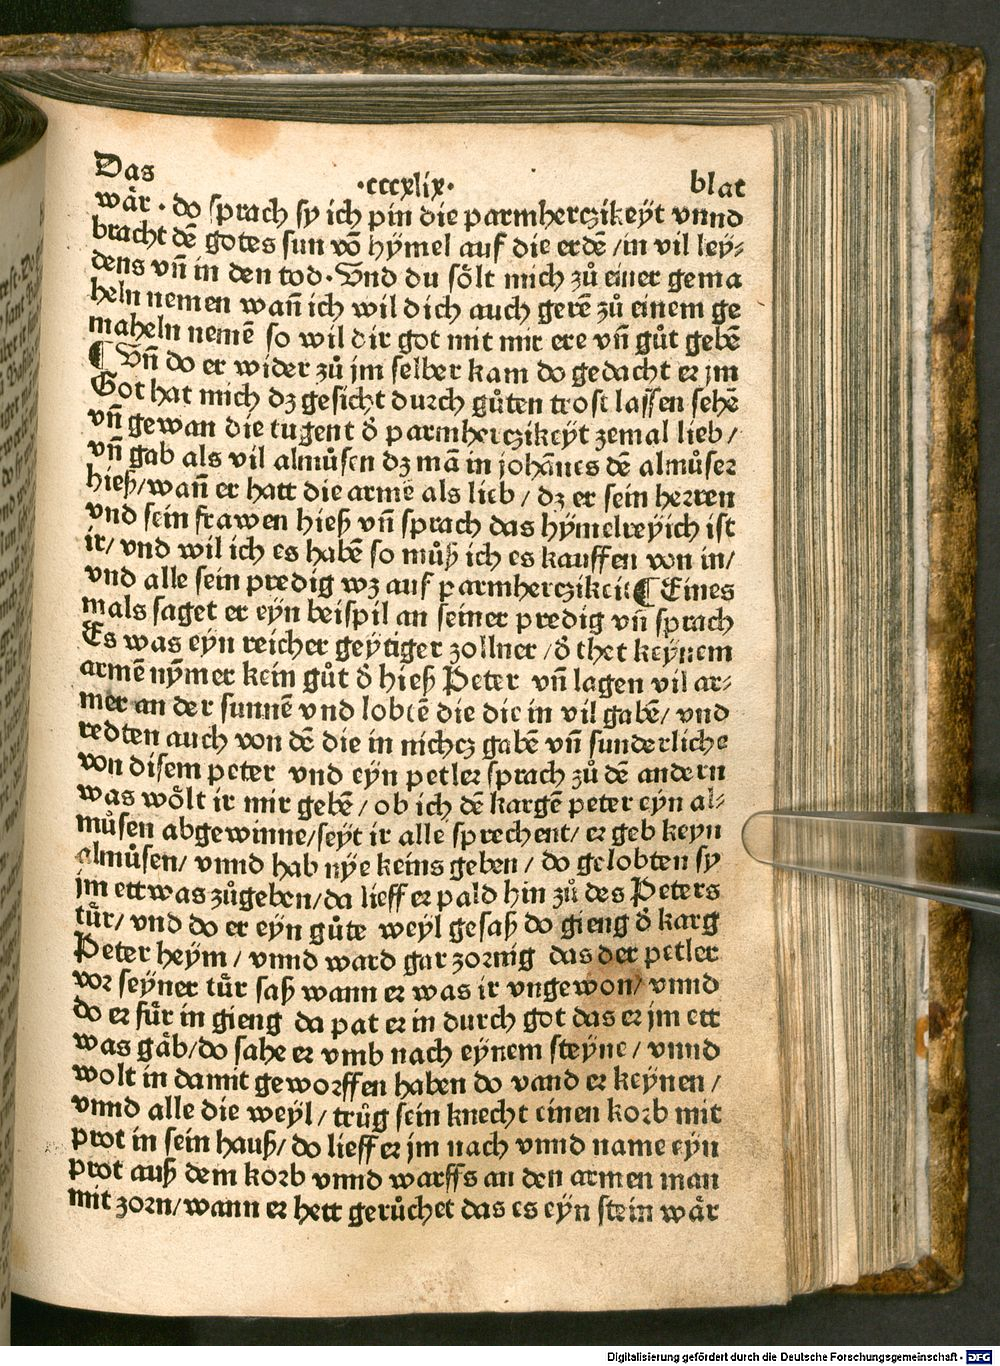 Das ·cccxlix· blat
wår · do sprach sy ich pin die parmherczikeyt vnnd
bracht dē gotes sun vō hÿmel auf die erdē /in vil ley⸗
dens vn̄ in den tod· Vnd du sőlt mich zů einer gema
heln nemen wan̄ ich wil dich auch gerē zů einem ge
maheln nemē so wil dir got mit mir ere vn̄ gůt gebē
¶ Vn̄ do er wider zů jm selber kam do gedacht er jm
Got hat mich dz gesicht durch gůten trost lassen sehē
vn̄ gewan die tugent d̾ parmherczikeyt zemal lieb /
vn̄ gab als vil almůsen dz mā in johānes dē almůser
hieß/wan̄ er hatt die armē als lieb / dz er sein herren
vnd sein frawen hieß vn̄ sprach das hÿmelreÿich ist
ir/ vnd wil ich es habē so můß ich es kauffen von in/
vnd alle sein predig wz auf parmherczikeit¶ Eines
mals saget er eÿn beispil an seiner predig vn̄ sprach
Es was eÿn reicher geÿtiger zollner /d̾ thet keÿnem
armē nȳmer kein gůt d̾ hieß Peter vn̄ lagen vil ar⸗
mer an der sunnē vnd lobtē die die in vil gabē/ vnd
redten auch von dē die in nichcz gabē vn̄ sunderliche
von disem peter vnd eÿn petler sprach zů dē andern
was wőlt ir mir gebē / ob ich dē kargē peter eÿn al⸗
můsen abgewinne/seyt ir alle sprechent/ er geb keyn
almůsen/ vnnd hab nÿe keins geben / do gelobten sy
jm ettwas zůgeben/da lieff er pald hin zů des Peters
tůr/ vnd do er eÿn gůte weyl gesaß do gieng d̾ karg
Peter heÿm / vnnd ward gar zornig das der petler
vor seÿner tůr saß wann er was ir vngewon/ vnnd
do er fůr in gieng da pat er in durch got das er jm ett
was gåb/do sahe er vmb nach eÿnem steÿne / vnnd
wolt in damit geworffen haben do vand er keÿnen /
vnnd alle die weÿl / trůg sein knecht einen korb mit
prot in sein hauß/ do lieff er jm nach vnnd name eÿn
prot auß dem korb vnnd warffs an den armen man
mit zorn/wann er hett gerůchet das es eÿn stein wår
Digitalisierung gefördert durch die Deutsche Forschungsgemeinschaft - DFG